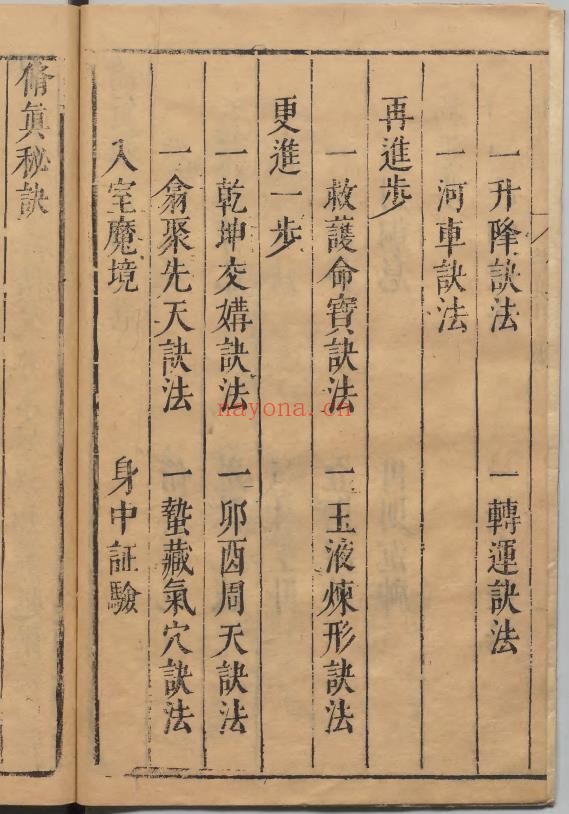 一升降訣法　一轉運訣法
一河車訣法
再進步
一救護命寶訣法　一玉液煉形訣法
更進一步
一乾坤交媾訣法　一卯酉周天訣法
一翕聚先天訣法　一蟄藏氣穴訣法
入室魔境　身中証驗
脩真秘訣
nayona.cn